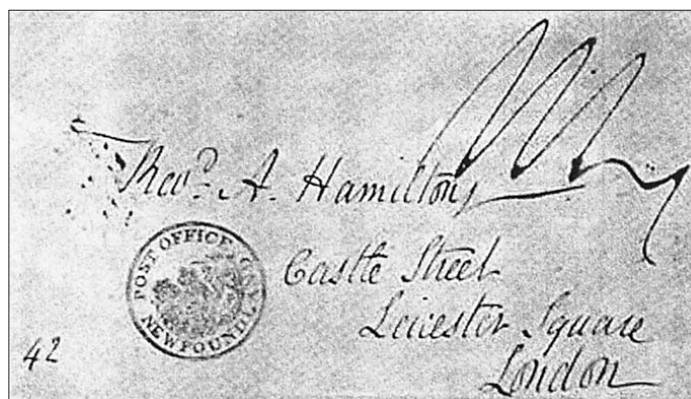 Rev.d A. Hamilton,
Castle Street
Leicester Square
London
POST OFFICE
NEWFOUNDLAND
42